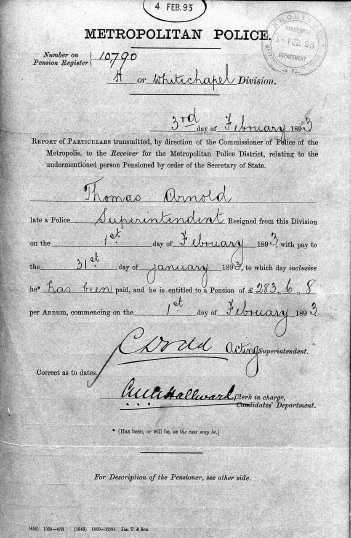 4 FEB. 93
METROPOLITAN POLICE.
Number on
Pension Register
10790
H or Whitechapel Division.
FEB. 93
3rd day of February 1893
REPORT OF PARTICULARS transmitted, by direction of the Commissioner of Police of the
Metropolis, to the Receiver for the Metropolitan Police District, relating to the
undermentioned person Pensioned by order of the Secretary of State.
Thomas Arnold
late a Police Superintendent Resigned from this Division
on the 1st day of February 1893, with pay to
the 31st day of January 1893, to which day inclusive
he* has been paid, and he is entitled to a Pension of £ 283.6.8
per Annum, commencing on the 1st day of February 1893
C Dodd Acting Superintendent.
Correct as to dates,
Hallward, Clerk in charge,
Candidates' Department.
* (Has been, or will be, as the case may be.)
For Description of the Pensioner, see other side.